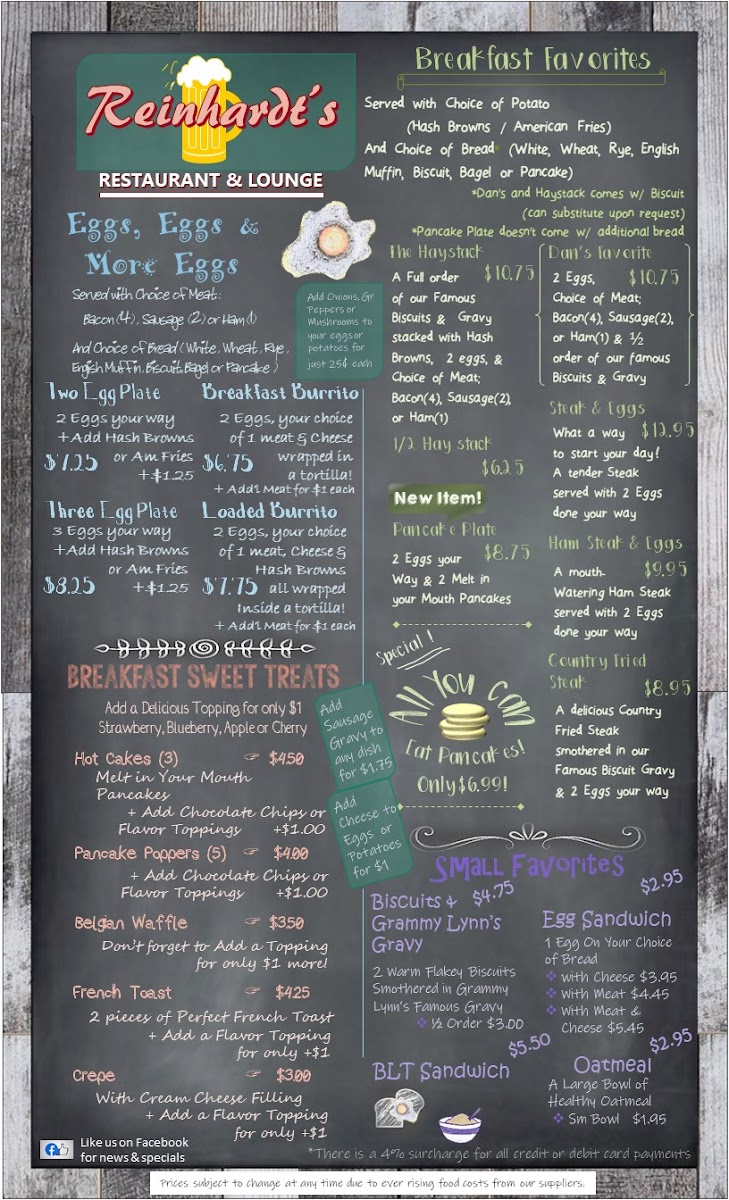 Reinhardt's
RESTAURANT & LOUNGE
Eggs, Eggs &
More Eggs
Served with Choice of Meat:
Bacon(4), Sausage (2) or Ham(1)
And Choice of Bread (White, Wheat, Rye,
English Muffin, Biscuit, Bagel or Pancake)
Add Onions, Gr
Peppers or
Mushrooms to
your eggs or
potatoes for
just 25¢ each
Two Egg Plate
2 Eggs your way
+Add Hash Browns
or Am Fries
$7.25
+$1.25
Breakfast Burrito
2 Eggs, your choice
of 1 meat & Cheese
$6.75 wrapped in
a tortilla!
+ Add'l Meat for $1 each
Three Egg Plate
3 Eggs your way
+Add Hash Browns
or Am Fries
$8.25 +$1.25
Loaded Burrito
2 Eggs, your choice
of 1 meat, Cheese &
Hash Browns
$7.75 all wrapped
Inside a tortilla!
+ Add'l Meat for $1 each
BREAKFAST SWEET TREATS
Add a Delicious Topping for only $1
Strawberry, Blueberry, Apple or Cherry
Hot Cakes (3) ☞ $4.50
Melt in Your Mouth
Pancakes
+ Add Chocolate Chips or
Flavor Toppings +$1.00
Pancake Poppers (5) ☞ $4.00
+ Add Chocolate Chips or
Flavor Toppings +$1.00
Belgian Waffle ☞ $3.50
Don't forget to Add a Topping
for only $1 more!
French Toast ☞ $4.25
2 pieces of Perfect French Toast
+ Add a Flavor Topping
for only +$1
Crepe ☞ $3.00
With Cream Cheese Filling
+ Add a Flavor Topping
for only +$1
Add
Sausage
Gravy to
any dish
for $1.75
Add
Cheese to
Eggs or
Potatoes
for $1
Like us on Facebook
for news & specials
Breakfast Favorites
Served with Choice of Potato
(Hash Browns / American Fries)
And Choice of Bread* (White, Wheat, Rye, English
Muffin, Biscuit, Bagel or Pancake)
*Dan's and Haystack comes w/ Biscuit
(can substitute upon request)
*Pancake Plate doesn't come w/ additional bread
The Haystack
A Full order $10.75
of our Famous
Biscuits & Gravy
stacked with Hash
Browns, 2 eggs, &
Choice of Meat;
Bacon(4), Sausage(2),
or Ham(1)
1/2 Hay stack
$6.25
New Item!
Pancake Plate
2 Eggs your $8.75
Way & 2 Melt in
your Mouth Pancakes
Special!
All You Can
Eat Pancakes!
Only $6.99!
Dan's Favorite
2 Eggs, $10.75
Choice of Meat;
Bacon(4), Sausage(2),
or Ham(1) & ½
order of our famous
Biscuits & Gravy
Steak & Eggs
What a way $12.95
to start your day!
A tender Steak
served with 2 Eggs
done your way
Ham Steak & Eggs
A mouth- $9.95
Watering Ham Steak
served with 2 Eggs
done your way
Country Fried
Steak $8.95
A delicious Country
Fried Steak
smothered in our
Famous Biscuit Gravy
& 2 Eggs your way
Small Favorites
Biscuits & $4.75
Grammy Lynn's
Gravy
2 Warm Flakey Biscuits
Smothered in Grammy
Lynn's Famous Gravy
❖ ½ Order $3.00
$2.95
Egg Sandwich
1 Egg On Your Choice
of Bread
❖ with Cheese $3.95
❖ with Meat $4.45
❖ with Meat &
Cheese $5.45
$5.50
BLT Sandwich
$2.95
Oatmeal
A Large Bowl of
Healthy Oatmeal
❖ Sm Bowl $1.95
*There is a 4% surcharge for all credit or debit card payments
Prices subject to change at any time due to ever rising food costs from our suppliers.